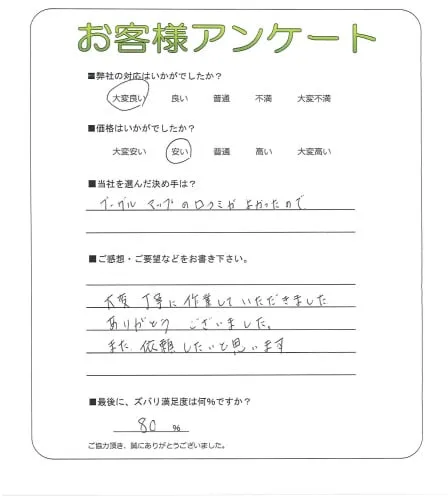 お客様アンケート
■弊社の対応はいかがでしたか？
大変良い 良い 普通 不満 大変不満
■価格はいかがでしたか？
大変安い 安い 普通 高い 大変高い
■当社を選んだ決め手は？
グーグル マップの口コミがよかったので
■ご感想・ご要望などをお書き下さい。
大変 丁寧に作業していただきました
ありがとうございました。
また 依頼したいと思います
■最後に、ズバリ満足度は何%ですか？
80 %
ご協力頂き、誠にありがとうございました。